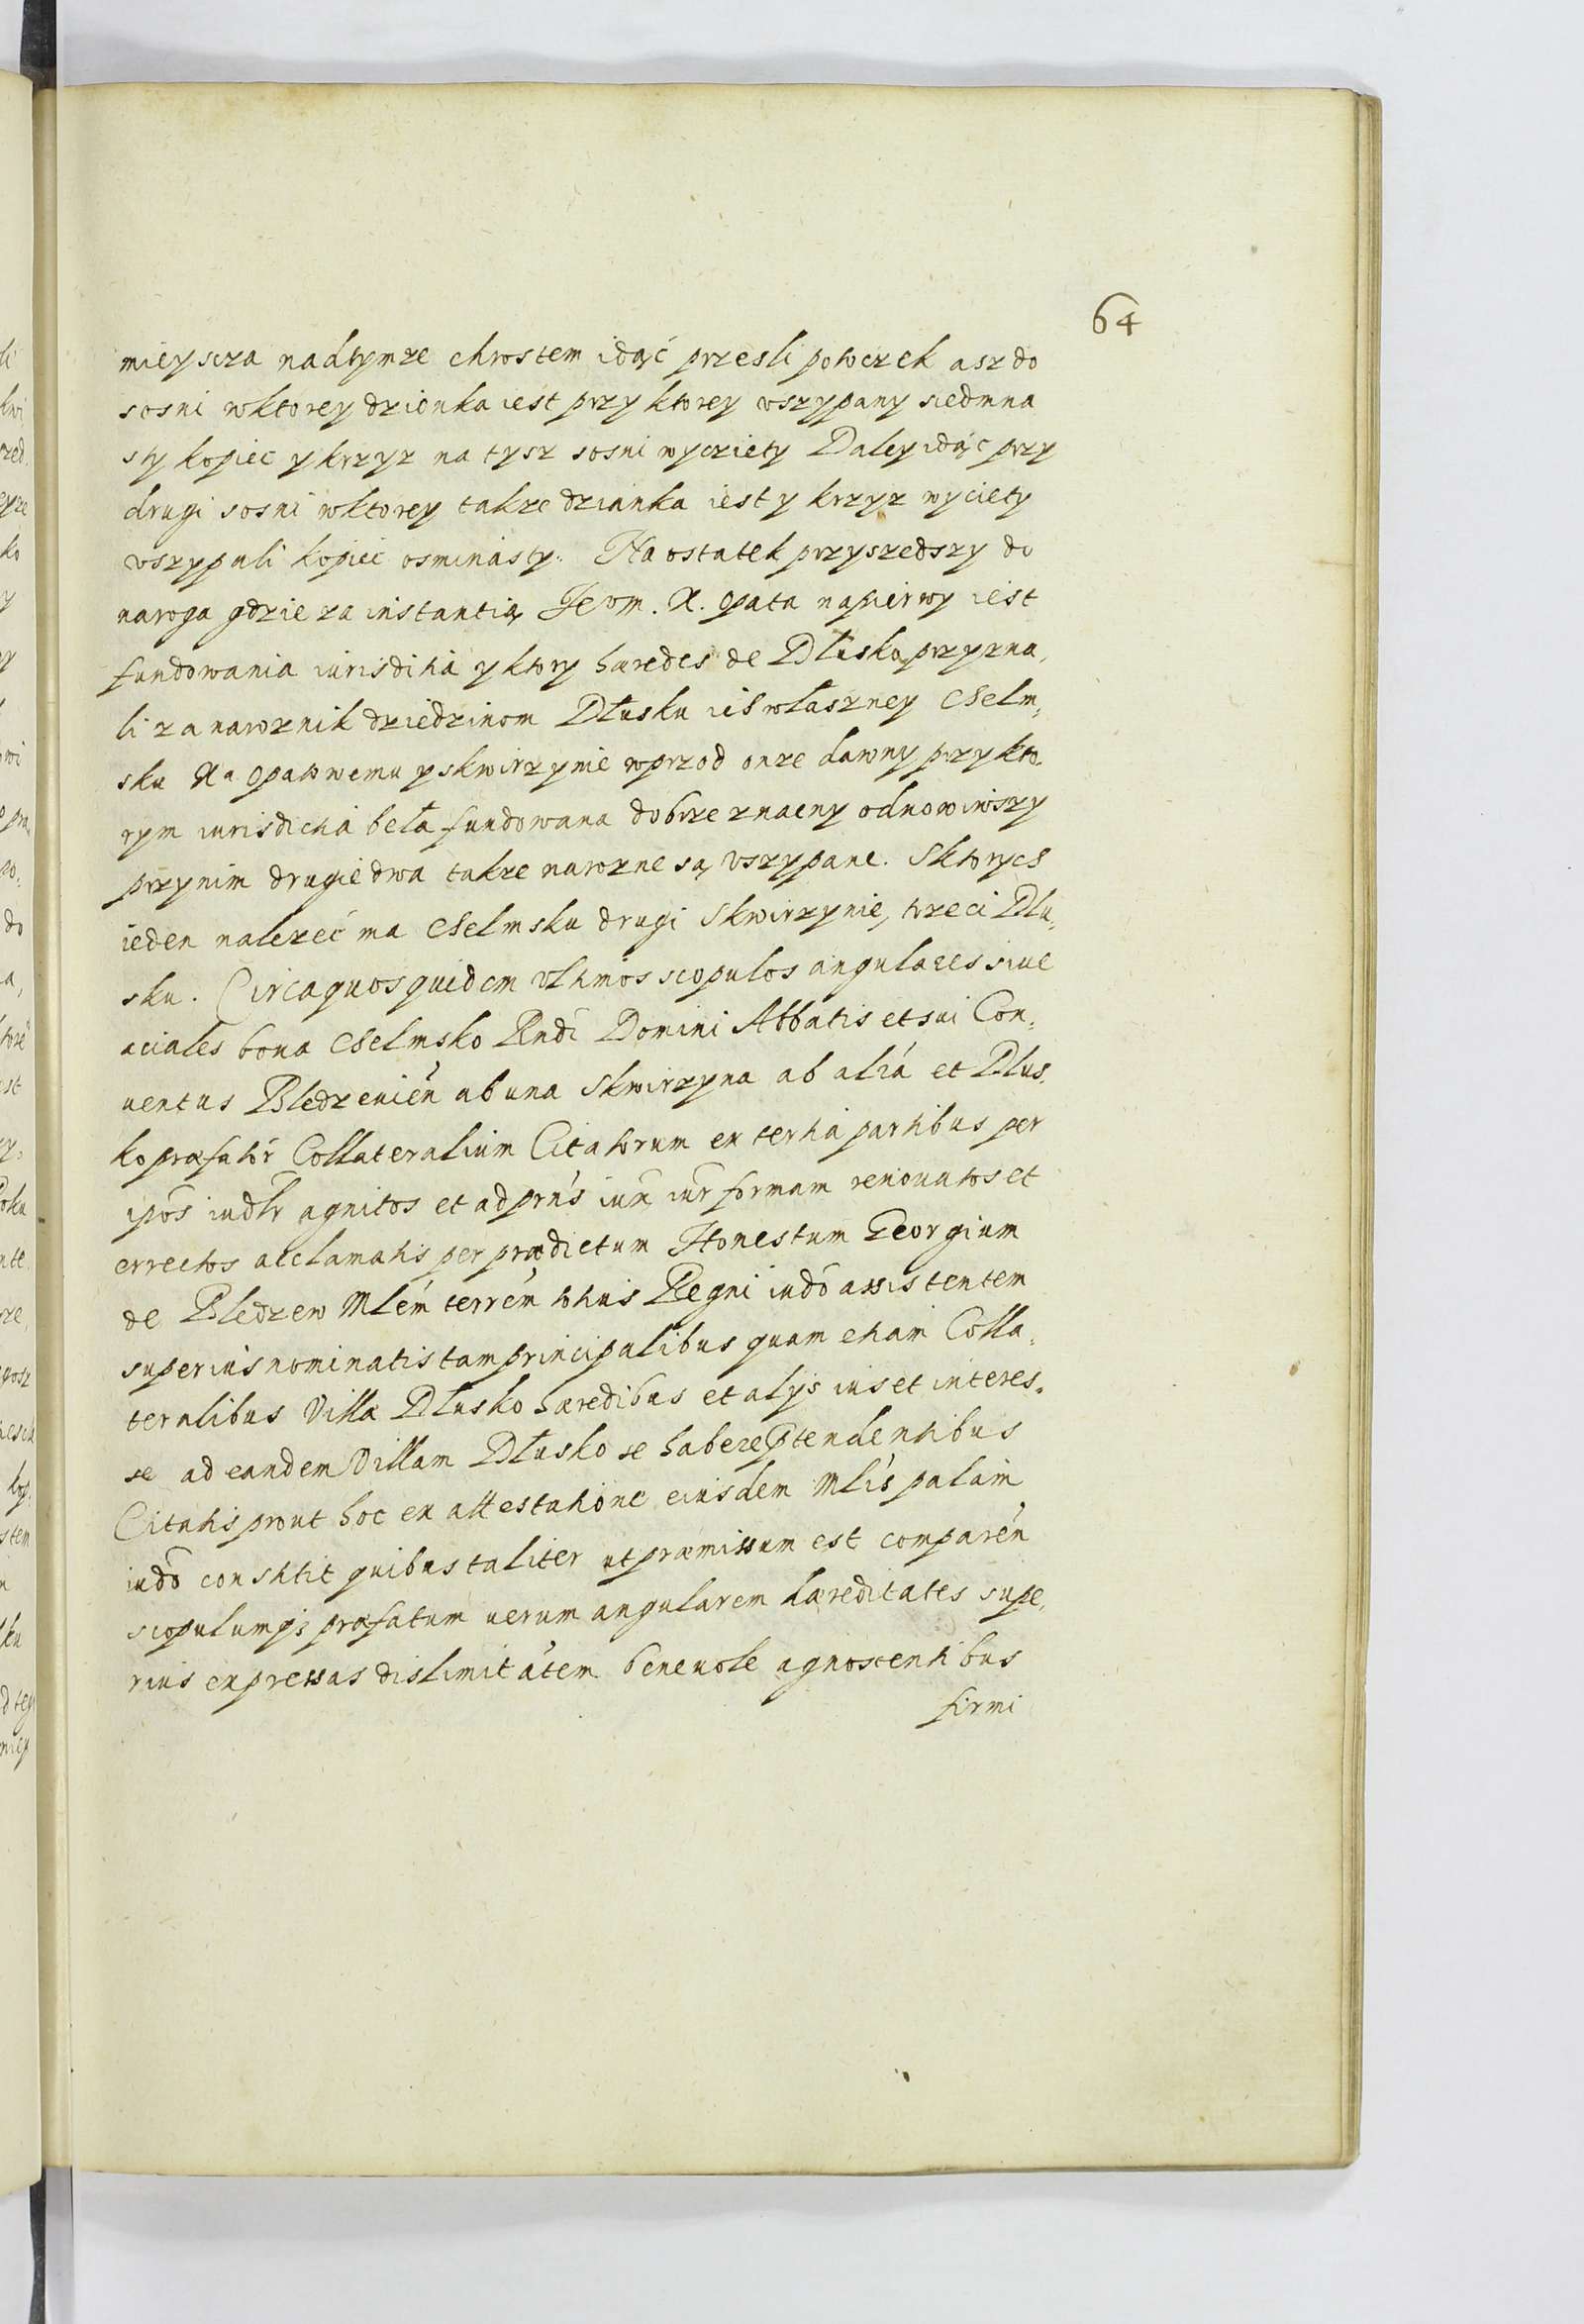 64
mieyscza nadtymze chrostem idąć przesli potoczek asz do
sosni wktorey dzienka iest przy ktorey vszypany siedmna
sty kopiec y krzyz na tysz sosni wycziety Daley idąc przy
drugi sosni wktorey takze dzianka iest y krzyz wyciety
vszypali kopiec osminasty. Na ostatek przyszedszy do
naroga gdzie za instantią Jevm. X. opata napierwy iest
fundowania iurisditia y ktory hæredes de Dłusko przyzna,
li za naroznik dziedzinom Dłusku iest własznej Chelm,
sku Xa opatowemu y skwirzynie wprzod onze dawny przy kto,
rym iurisdictia beła fundowana dobrze znacny odnowiwszy
przynim drugie dwa takze narozne są vszypane. Sktorych
ieden nalezeć ma Chelmsku drugi Skwirzynie, trzeci Dlu,
sku. Circa quos quidem vltimos scopulos angulares siue
aciales bona Chelmsko Rndi Domini Abbatis et sui Con,
uentus Bledzeuien ab una Skwirzyna ab aliá et Dlus,
ko præfator Collateralium Citatorum ex tertia partibus per
ipos iudtr agnitos et ad prns iun iur formam renouatos et
errectos acclamatis per prædictum Honestum Georgium
de Bledzew Mlem terrem totius Regni iudo assistentem
superius nominatis tam principalibus quam etiam Colla,
teralibus Villæ Dłusko hæredibus et alys ius et interes,
se ad eandem Villam Dłusko se habere ptendentibus
Citatis prout hoc ex attestatione eiusdem Mlis palam
iudo constitit quibus taliter ut præmissum est comparen
scopulumq; præfatum uerum angularem hæreditates supe,
rius expressas dislimitatem beneuole agnoscentibus
firmi